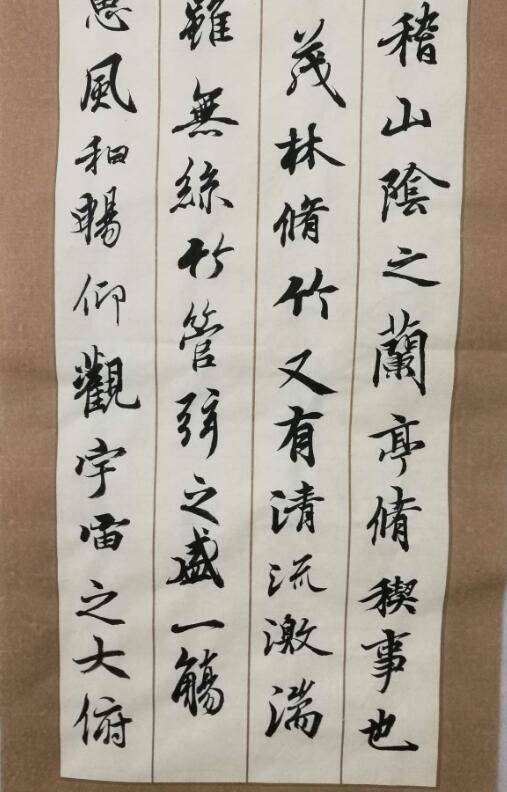 稽山陰之蘭亭脩稧事也
茂林脩竹又有清流激湍
雖無絲竹管弦之盛一觴
風和暢仰觀宇宙之大俯